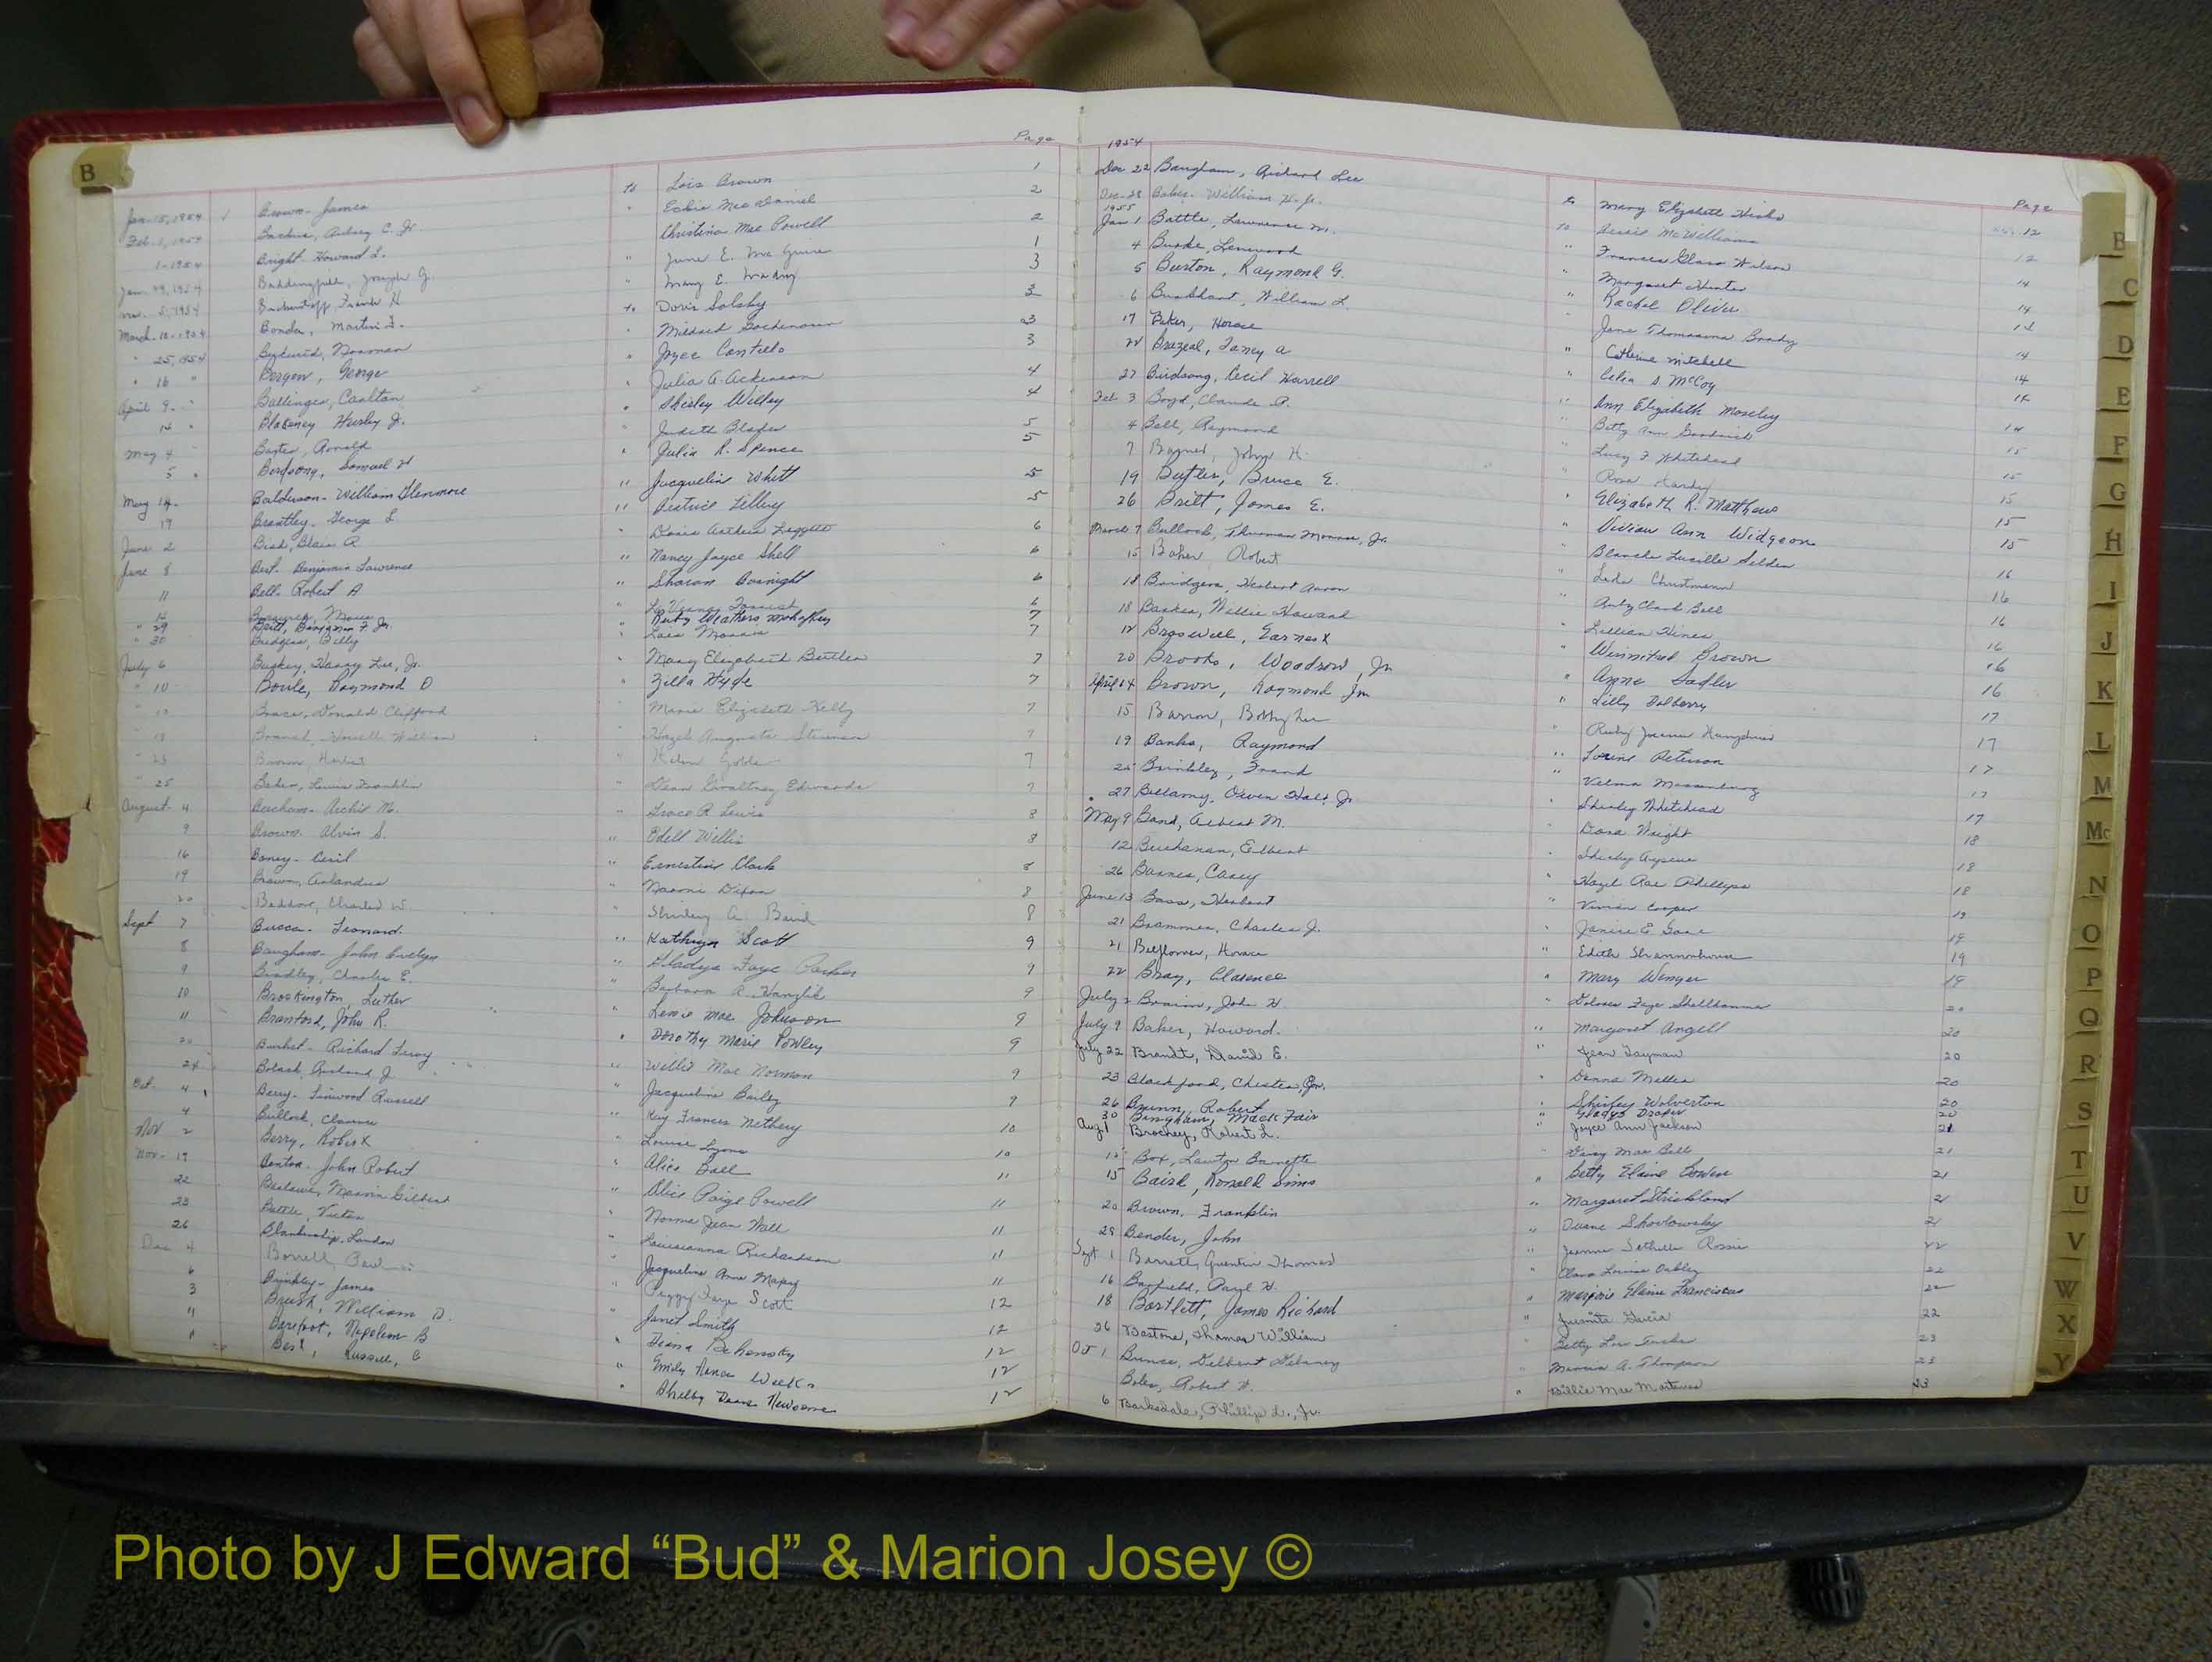 Page
B
Jan-15, 1954 Brown- James to Lois Brown 1
Feb-1, 1954 Aubrey C. Jr. Mae Daniel 2
1-1954 Bright- Howard L. Christina Mae Powell 2
Joseph G. " June E. Mc Guire 1
5, 1954 Frank H " Mary E. 3
March-10-1954 Bonda, Martin to Doris Solsby 3
" 25, 1954 Norman " Mildred 3
" 16 " Bergen, George " Joyce Costello 3
April 9- " Ballinger, Carlton " Julia A. Ackerson 4
14 " Blakeney Husley J. " Shirley Willey 4
May 4 Baxter, Ronald " Judith Blades 5
5 " Birdsong, Samuel H " Julia R. Spence 5
May 14- Balderson- William Glenmore " Jacquelin Whitt 5
19 Brantley- George L. " Beatrice Lilley 5
June 2 Bish, Blair R " Doris Liggett 6
June 8 Best- Benjamin Lawrence " Nancy Joyce Shell 6
11 Bell Robert A " Sharon Bosnight 6
" 29 Britt, Benjamin F. Jr. " Ruby Weathers 7
" 30 Bridgers, Billy " Lois 7
July 6 Buskey, Harry Lee, Jr. " Mary Elizabeth Butler 7
" 10 Bowle, Raymond D " Zilla Hyde 7
Brace, Donald Clifford " Marie Elizabeth Kelly 7
Branch, Howell William " Hazel Augusta Stevenson 7
" 23 Brown Herbert " Helen Goble 7
" 25 Baker, Lewis Franklin " Jean Gwaltney Edwards 7
August- 4 Beacham- Archie M. " Grace R Lewis 8
9 Brown- Alvin S. " Odell Willis 8
16 Boney- Cecil " Ernestine Clark 8
19 Brown, Arlandus " Naomi Dixon 8
20 Beddow, Charles W. " Shirley A. Baird 8
Sept 7 Bucca- Leonard- " Kathryn Scott 9
8 Baugham- John Evelyn " Gladys Faye Parker 9
9 Bradley, Charlie E. " Barbara A. Hanzlik 9
10 Brockington, Luther " Lessie Mae Johnson 9
11 Branford, John R. " Dorothy Marie Powley 9
20 Burket- Richard Leroy " Willie Mae Norman 9
24 Bolack, Richard J " Jacqueline Bailey 9
Oct- 4 Berry- Linwood Russell " Key Frances Nethery 10
4 Bullock, Clarence " Louise Lyons 10
Nov 2 Berry, Robert " Alice Ball 11
Nov- 19 Benton- John Robert " Alice Paige Powell 11
22 Marvin Gilbert " Norma Jean Wall 11
23 Battle, Victor " Louisianna Richardson 11
26 Blankenship, Landon " Jacqueline Anne Maxey 11
Dec 4 Borrell, Paul " Peggy Faye Scott 12
6 Brinkley- James " Janet Smith 12
3 Brush, William D. " Diana 12
" Barefoot, Napoleon B " Emily Nance Weeks 12
" Best, Russell, C " Shelby Deane Newsome 12
1954
Page
Dec 22 Baugham, Richard Lee to Mary Elizabeth Hicks 12
Dec-28 Baker- William H. Jr. to Bessie McWilliams 12
1955
Jan 1 Battle, Lawrence M. " Frances Glass Wilson 14
4 Burke, Lenwood " Margaret Hunter 14
5 Burton, Raymond G. " Rachel Oliver 14
6 Burkhart, William L. " Jane Thomasina Brady 14
17 Baker, Horace " Catherine Mitchell 14
22 Brazeal, Taney A " Celia S. McCoy 14
27 Birdsong, Cecil Harrell " Ann Elizabeth Moseley 14
Feb 3 Boyd, Claude P. " Betty Ann Goodrich 14
4 Bell, Raymond " Lucy F. Whitehead 15
7 John H. " Rosa Hardy 15
19 Butler, Bruce E. " Elizabeth R. Matthews 15
26 Britt, James E. " Vivian Ann Widgeon 15
March 7 Bullock, Thurman Monroe, Jr. " Blanche Lucille Selden 15
15 Baker Robert " Leda Christmann 16
18 Bridgers, Herbert Aaron " Ruby Clark Bell 16
18 Barker, Willie Howard " Lillian Hines 16
12 Braswell, Earnest " Winnifred Brown 16
20 Brooks, Woodrow, Jr " Anne Sadler 16
April 14 Brown, Raymond Jr " Lilly Dolberry 16
15 Barron, Bobby Lee " Ruby Joanne Humphries 17
19 Banks, Raymond " Lorene Peterson 17
25 Brinkley, Frank " Velma Massenburg 17
27 Bellamy, Owen Holt Jr " Shirley Whitehead 17
May 9 Band, Albert M. " Dora Wright 17
12 Buchanan, Elbert " Shirley Ayscue 18
26 Barnes, Casey " Hazel Rae Phillips 18
June 13 Bass, Herbert " Vivian Cooper 18
21 Brammer, Charles J. " Janice E. 19
21 Belflower, Horace " Edith Shannonhouse 19
22 Bray, Clarence " Mary Winger 19
July 2 John H. " Dolores Faye Shellhammer 20
July 9 Baker, Howard- " Margaret Angell 20
July 22 Brandt, David E. " Jean Tayman 20
23 Blackford, Chester, Jr. " Donna Miller 20
26 Brunn, Robert " Shirley Wolverton 20
30 Bingham, Mack Fair " Gladys Draper 20
Aug 1 Brockey, Robert L. " Joyce Ann Jackson 21
12 Box, Lawton Burnette " Daisy Mae Bell 21
15 Baird, Ronald Sims " Betty Elaine Bowers 21
20 Brown, Franklin " Margaret Strickland 21
29 Bender, John " Duane 21
Sept 1 Barrett, Quentin Thomas " Jeanne 22
16 Barfield, Paryl H. " Clara Louise Oakley 22
18 Bartlett, James Richard " Marjorie Elaine Franciscus 22
26 Bastone, Thomas William " Juanita Garcia 22
Oct 1 Bunce, Delbert Delaney " Betty Lou Tucker 23
Boles, Robert H. " Marcia A. Thompson 23
6 Barksdale, Phillip L., Jr. " Billie Mae 23
B
C
D
E
F
G
H
I
J
K
L
M
Mc
N
O
P
Q
R
S
T
U
V
W
X
Y
Photo by J Edward “Bud” & Marion Josey ©